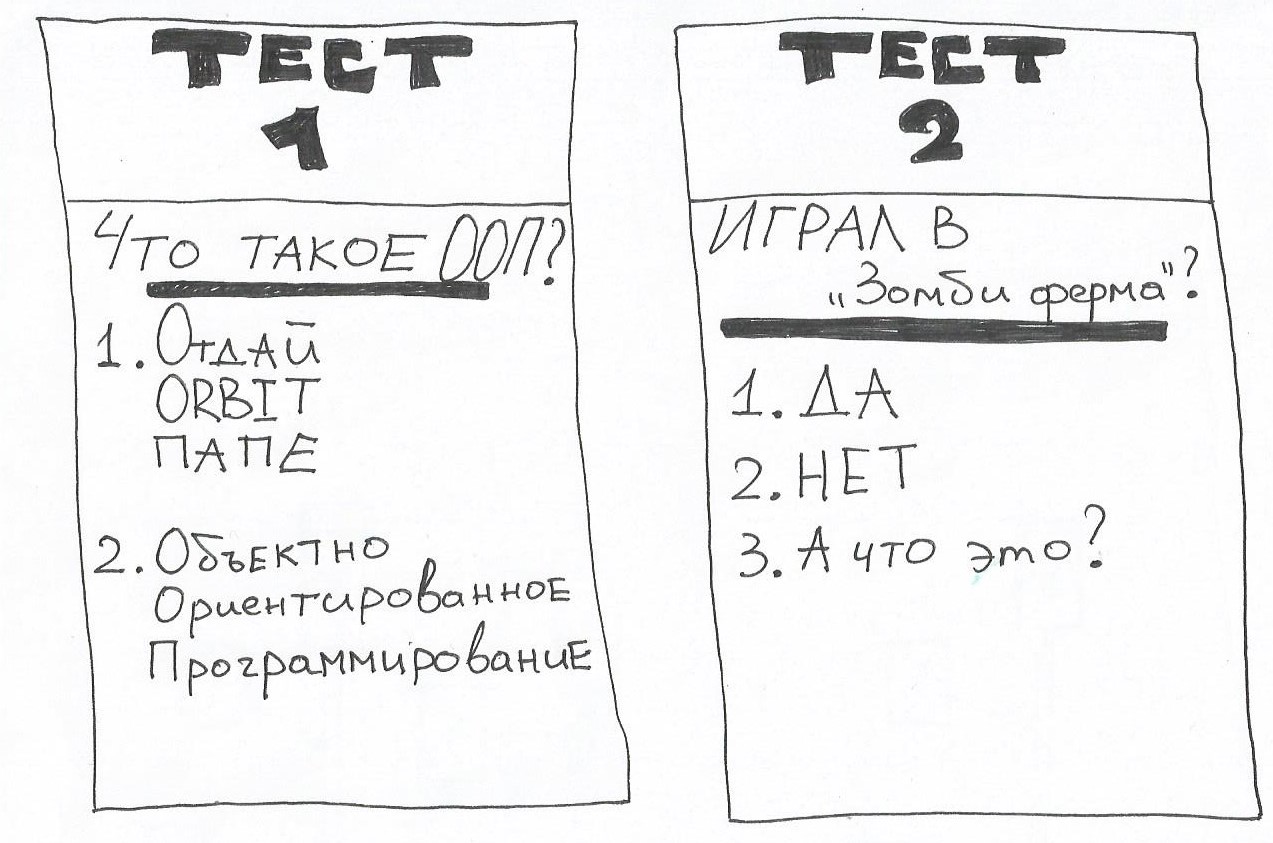 ТЕСТ
1
ЧТО ТАКОЕ ООП?
1. ОТДАЙ
ORBIT
ПАПЕ
2. ОБЪЕКТНО
Ориентированное
Программирование
ТЕСТ
2
ИГРАЛ В
„Зомби ферма"?
1. ДА
2. НЕТ
3. А что это?